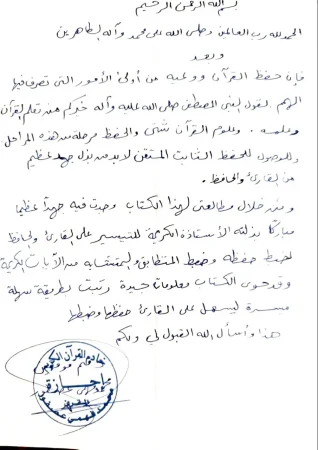 بسم الله الرحمن الرحيم
الحمد لله رب العالمين وصلى الله على محمد وآله الطاهرين
وبعد
فإن حفظ القرآن ووعيه من أولى الأمور التي تصرف فيها
الهمم لقول النبي المصطفى صلى الله عليه وآله خيركم من تعلم القرآن
وعلمه . وعلوم القرآن شتى والحفظ مرحلة من هذه المراحل
وللوصول للحفظ الثابت المتقن لابد من بذل جهد عظيم
من القارئ والحافظ .
ومن خلال مطالعتي لهذا الكتاب وجدت فيه جهداً عظيما
مباركا بذلته الأستاذة الكريمة للتيسير على القارئ والحافظ
حفظه وضبط المتطابق والمتشابه من الآيات الكريمة
وقد حوى الكتاب معلومات جيدة رتبت بطريقة سهلة
ميسرة ليسهل على القارئ حفظها وضبطها
هذا وأسأل الله القبول لي ولكم
خادم القرآن الكريم
إجازة